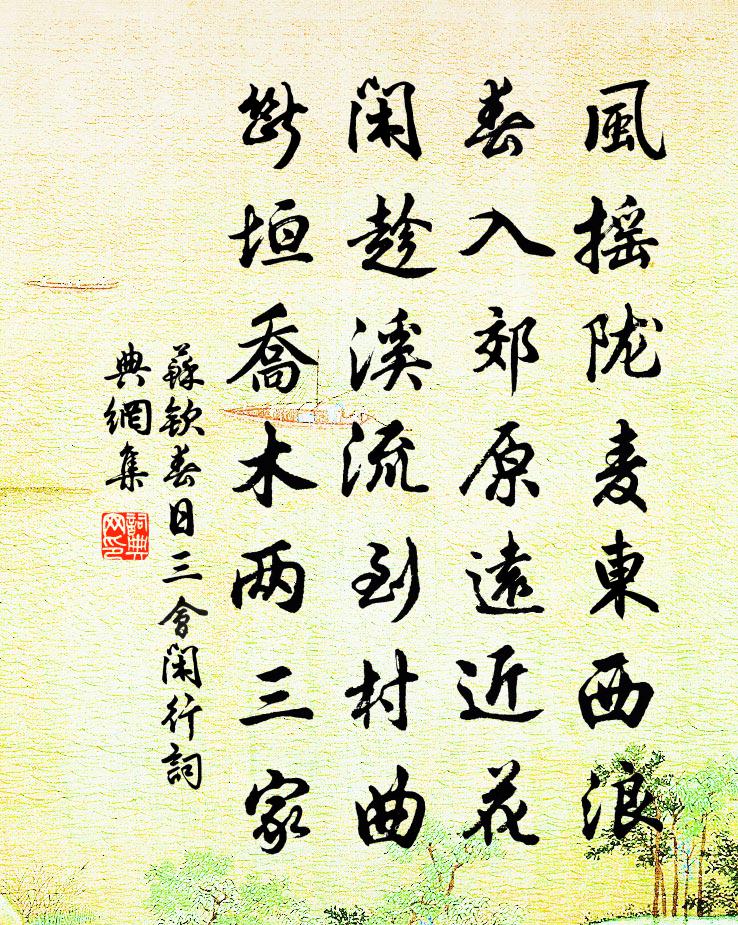 風搖陇麦東西浪
春入郊原遠近花
閑趁溪流到村曲
斷垣喬木两三家
蘇欽春日三會閑行詞
典網集
詞典网印